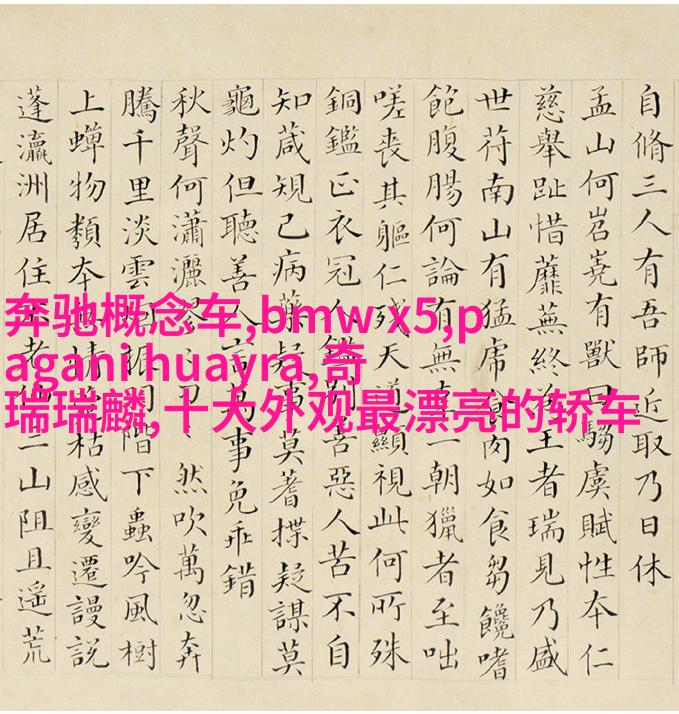 奔驰概念车,bmwx5,p
aganihuayra,奇
瑞瑞麟,十大外观最漂亮的轿车
自脩三人有吾師近取乃日休
孟山何岧嶤有獸曰騶虞賦性本仁
慈舉趾惜蘼蕪終為王者瑞見乃盛
世苻南山有猛虎食肉如食芻饞嗜
飽腹腸何論有無一朝獵者至咄
嗟丧其軀仁残天道顯視此何所殊
銅鑑正衣冠人鑑別善惡人苦不自
知葴規己病藥疑事莫蓍揲疑謀莫
龜灼但聽善人言萬事免乖錯
秋聲何瀟灑然吹萬忽奔
騰千里淡雲階下蟲吟風樹
上蟬物類本情枯感變遷謾説
蓬瀛洲居住老三山阻且遥荒